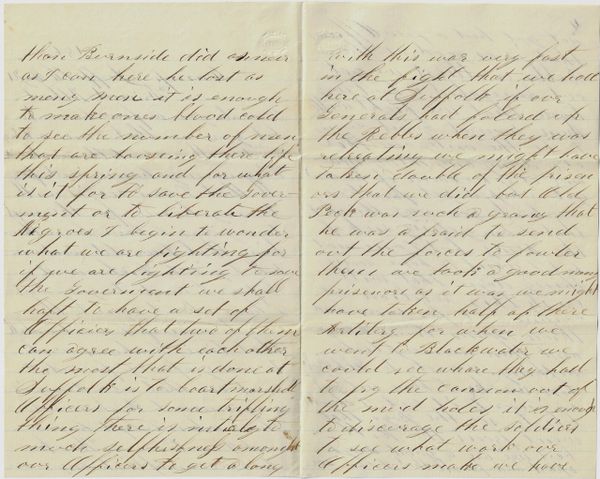 than Burnside did as near
as I can here he lost as
meny men it is enough
to make ones blood cold
to see the number of men
that are loosing there life
this spring and for what
is it for to save the Gover-
ment or to liberate the
Negroes I begin to wonder
what we are fighting for
if we are fighting to save
the Goverment we shall
haft to have a set of
Officiers that two of them
can agree with each other
the most that is done at
Suffolk is to coartmarshal
Officers for some trifling
thing there is
much selfishness amongst
our Officers to get along
with this war very fast
in the fight that we had
here at Suffolk if our
Generals had folerd up
the Rebbs when they was
retreating we might have
taken double of the prison
ors that we did but Old
Peck was such a grany that
he was a fraid to send
out the forces to fowler
them we took a good many
prisenors as it was we might
have taken half of there
Artilery for when we
went to Blackwater we
could see where they had
to pry the cannon out of
the mud holes it is enough
to discorage the soldiers
to see what work our
Officers make we have